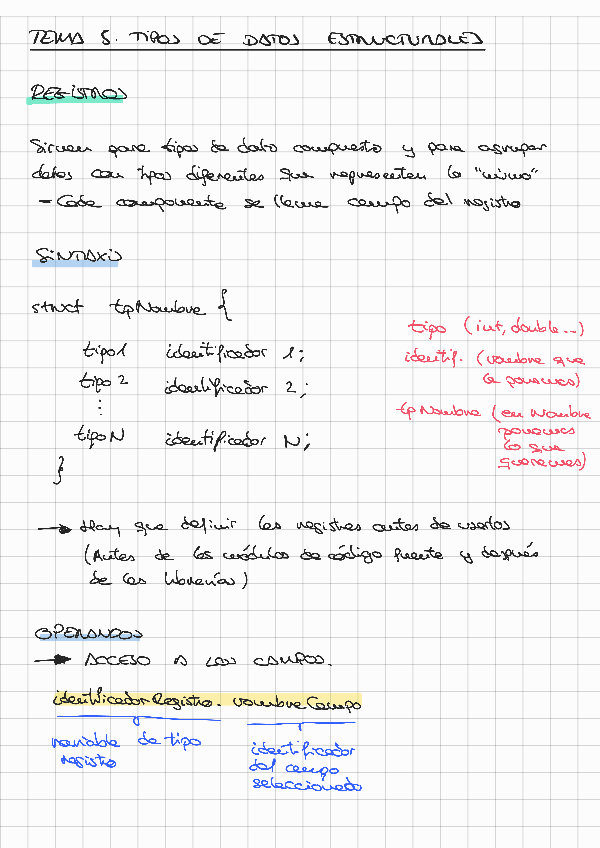 TEMA 5. TIPOS DE DATOS ESTRUCTURALES
REGISTROS
Sirven para tipos de dato compuesto y para agrupar
datos con tipos diferentes que representen lo "mismo"
- Cada componente se llama campo del registro
SINTAXIS
struct tpNombre {
tipo1 identificador 1;
tipo 2 identificador 2;
⋮
tipo N identificador N;
}
tipo (int, double...)
identif. (nombre que
le ponemos)
tpNombre (en Nombre
ponemos
lo que
queremos)
→ Hay que definir los registros antes de usarlos
(Antes de los módulos de código fuente y después
de las librerías)
OPERANDOS
→ ACCESO A LOS CAMPOS.
identificadorRegistro. nombreCampo
variable de tipo
registro
identificador
del campo
seleccionado